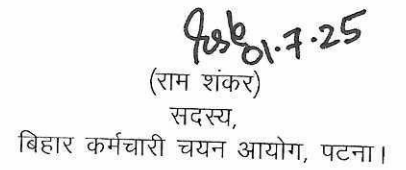 01.7.25
(राम शंकर)
सदस्य,
बिहार कर्मचारी चयन आयोग, पटना।